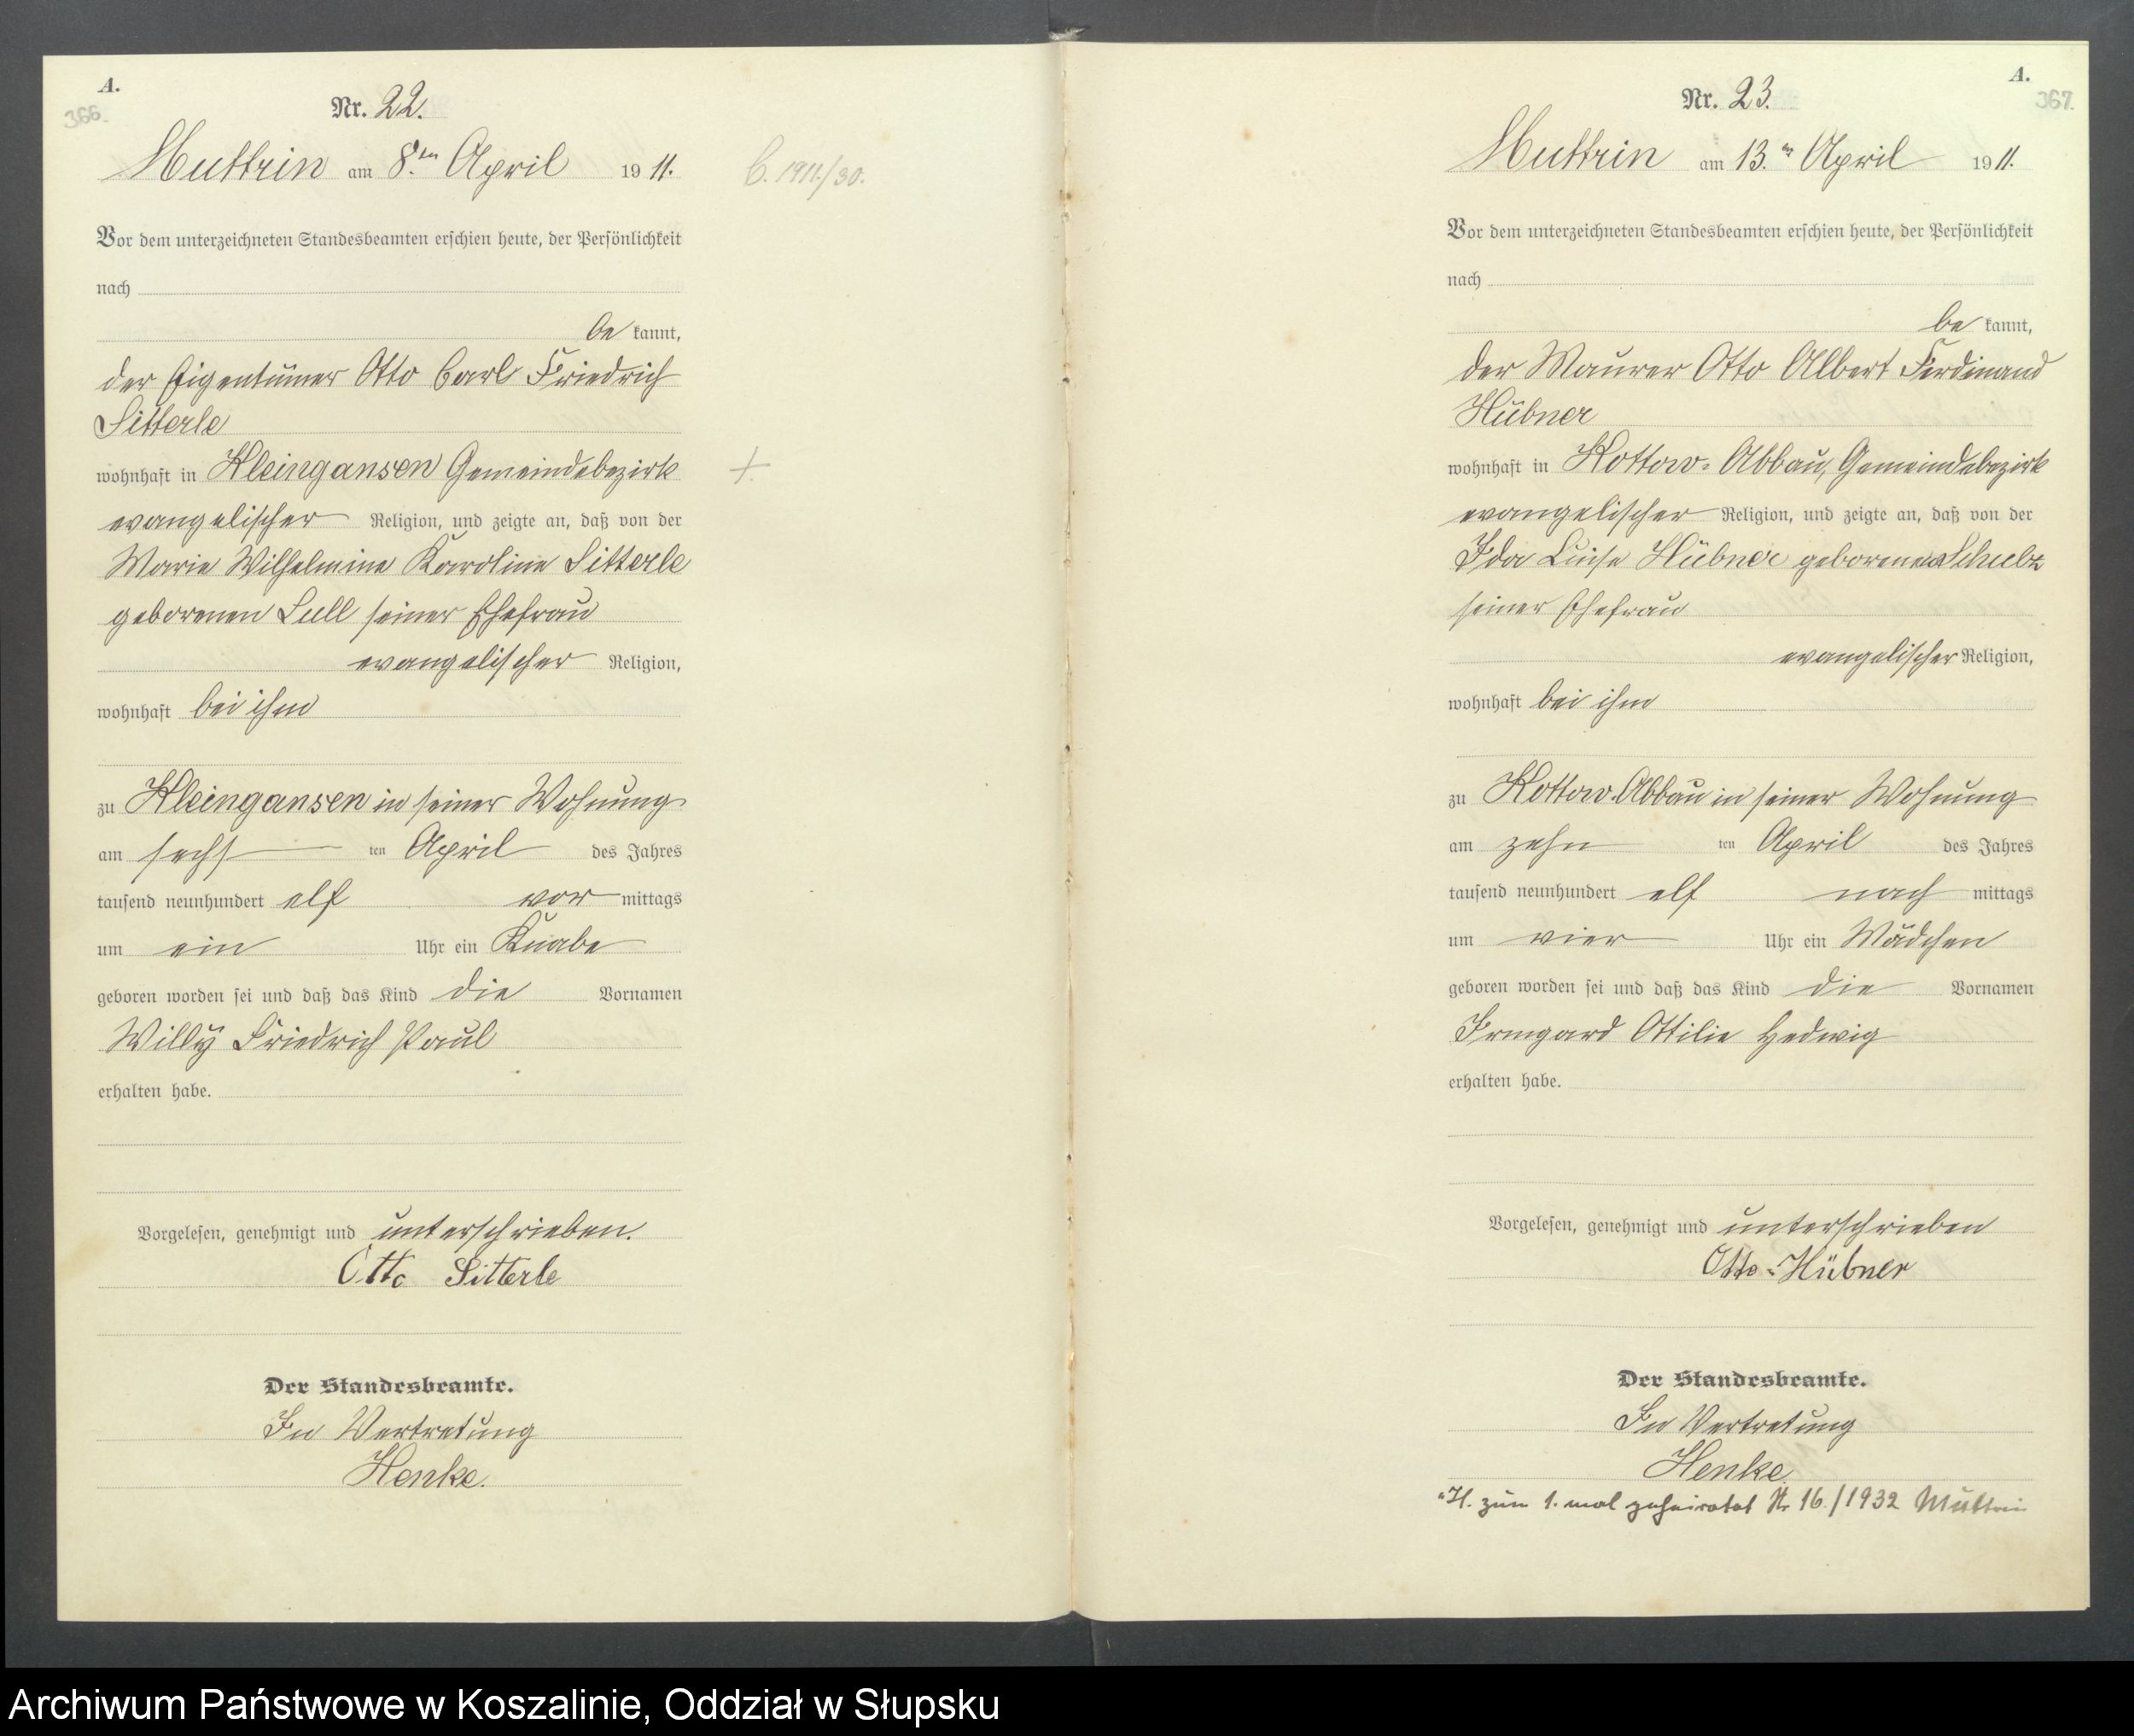 A.
366.
Nr. 22.
Muttrin am 8.ten April 1911.
C. 1911./30.
Vor dem unterzeichneten Standesbeamten erschien heute, der Persönlichkeit
nach
be kannt,
der Eigentümer Otto Carl Friedrich
Sitterle
wohnhaft in Kleingansen Gemeindebezirk
+
evangelischer Religion, und zeigte an, daß von der
Marie Wilhelmine Karoline Sitterle
geborenen Sull seiner Ehefrau
evangelischer Religion,
wohnhaft bei ihm
zu Kleingansen in seiner Wohnung
am sechs ten April des Jahres
tausend neunhundert elf vor mittags
um ein Uhr ein Knabe
geboren worden sei und daß das Kind die Vornamen
Willy Friedrich Paul
erhalten habe.
Vorgelesen, genehmigt und unterschrieben.
Otto Sitterle
Der Standesbeamte.
In Vertretung
Henke.
A.
367.
Nr. 23.
Muttrin am 13.ten April 1911.
Vor dem unterzeichneten Standesbeamten erschien heute, der Persönlichkeit
nach
be kannt,
der Maurer Otto Albert Ferdinand
Hübner
wohnhaft in Kottow-Abbau, Gemeindebezirk
evangelischer Religion, und zeigte an, daß von der
Ida Luise Hübner geborenen Schulz
seiner Ehefrau
evangelischer Religion,
wohnhaft bei ihm
zu Kottow-Abbau in seiner Wohnung
am zehn ten April des Jahres
tausend neunhundert elf nach mittags
um vier Uhr ein Mädchen
geboren worden sei und daß das Kind die Vornamen
Irmgard Ottilie Hedwig
erhalten habe.
Vorgelesen, genehmigt und unterschrieben
Otto Hübner
Der Standesbeamte.
In Vertretung
Henke.
H. zum 1. mal geheiratet Nr 16./1932 Muttrin
Archiwum Państwowe w Koszalinie, Oddział w Słupsku